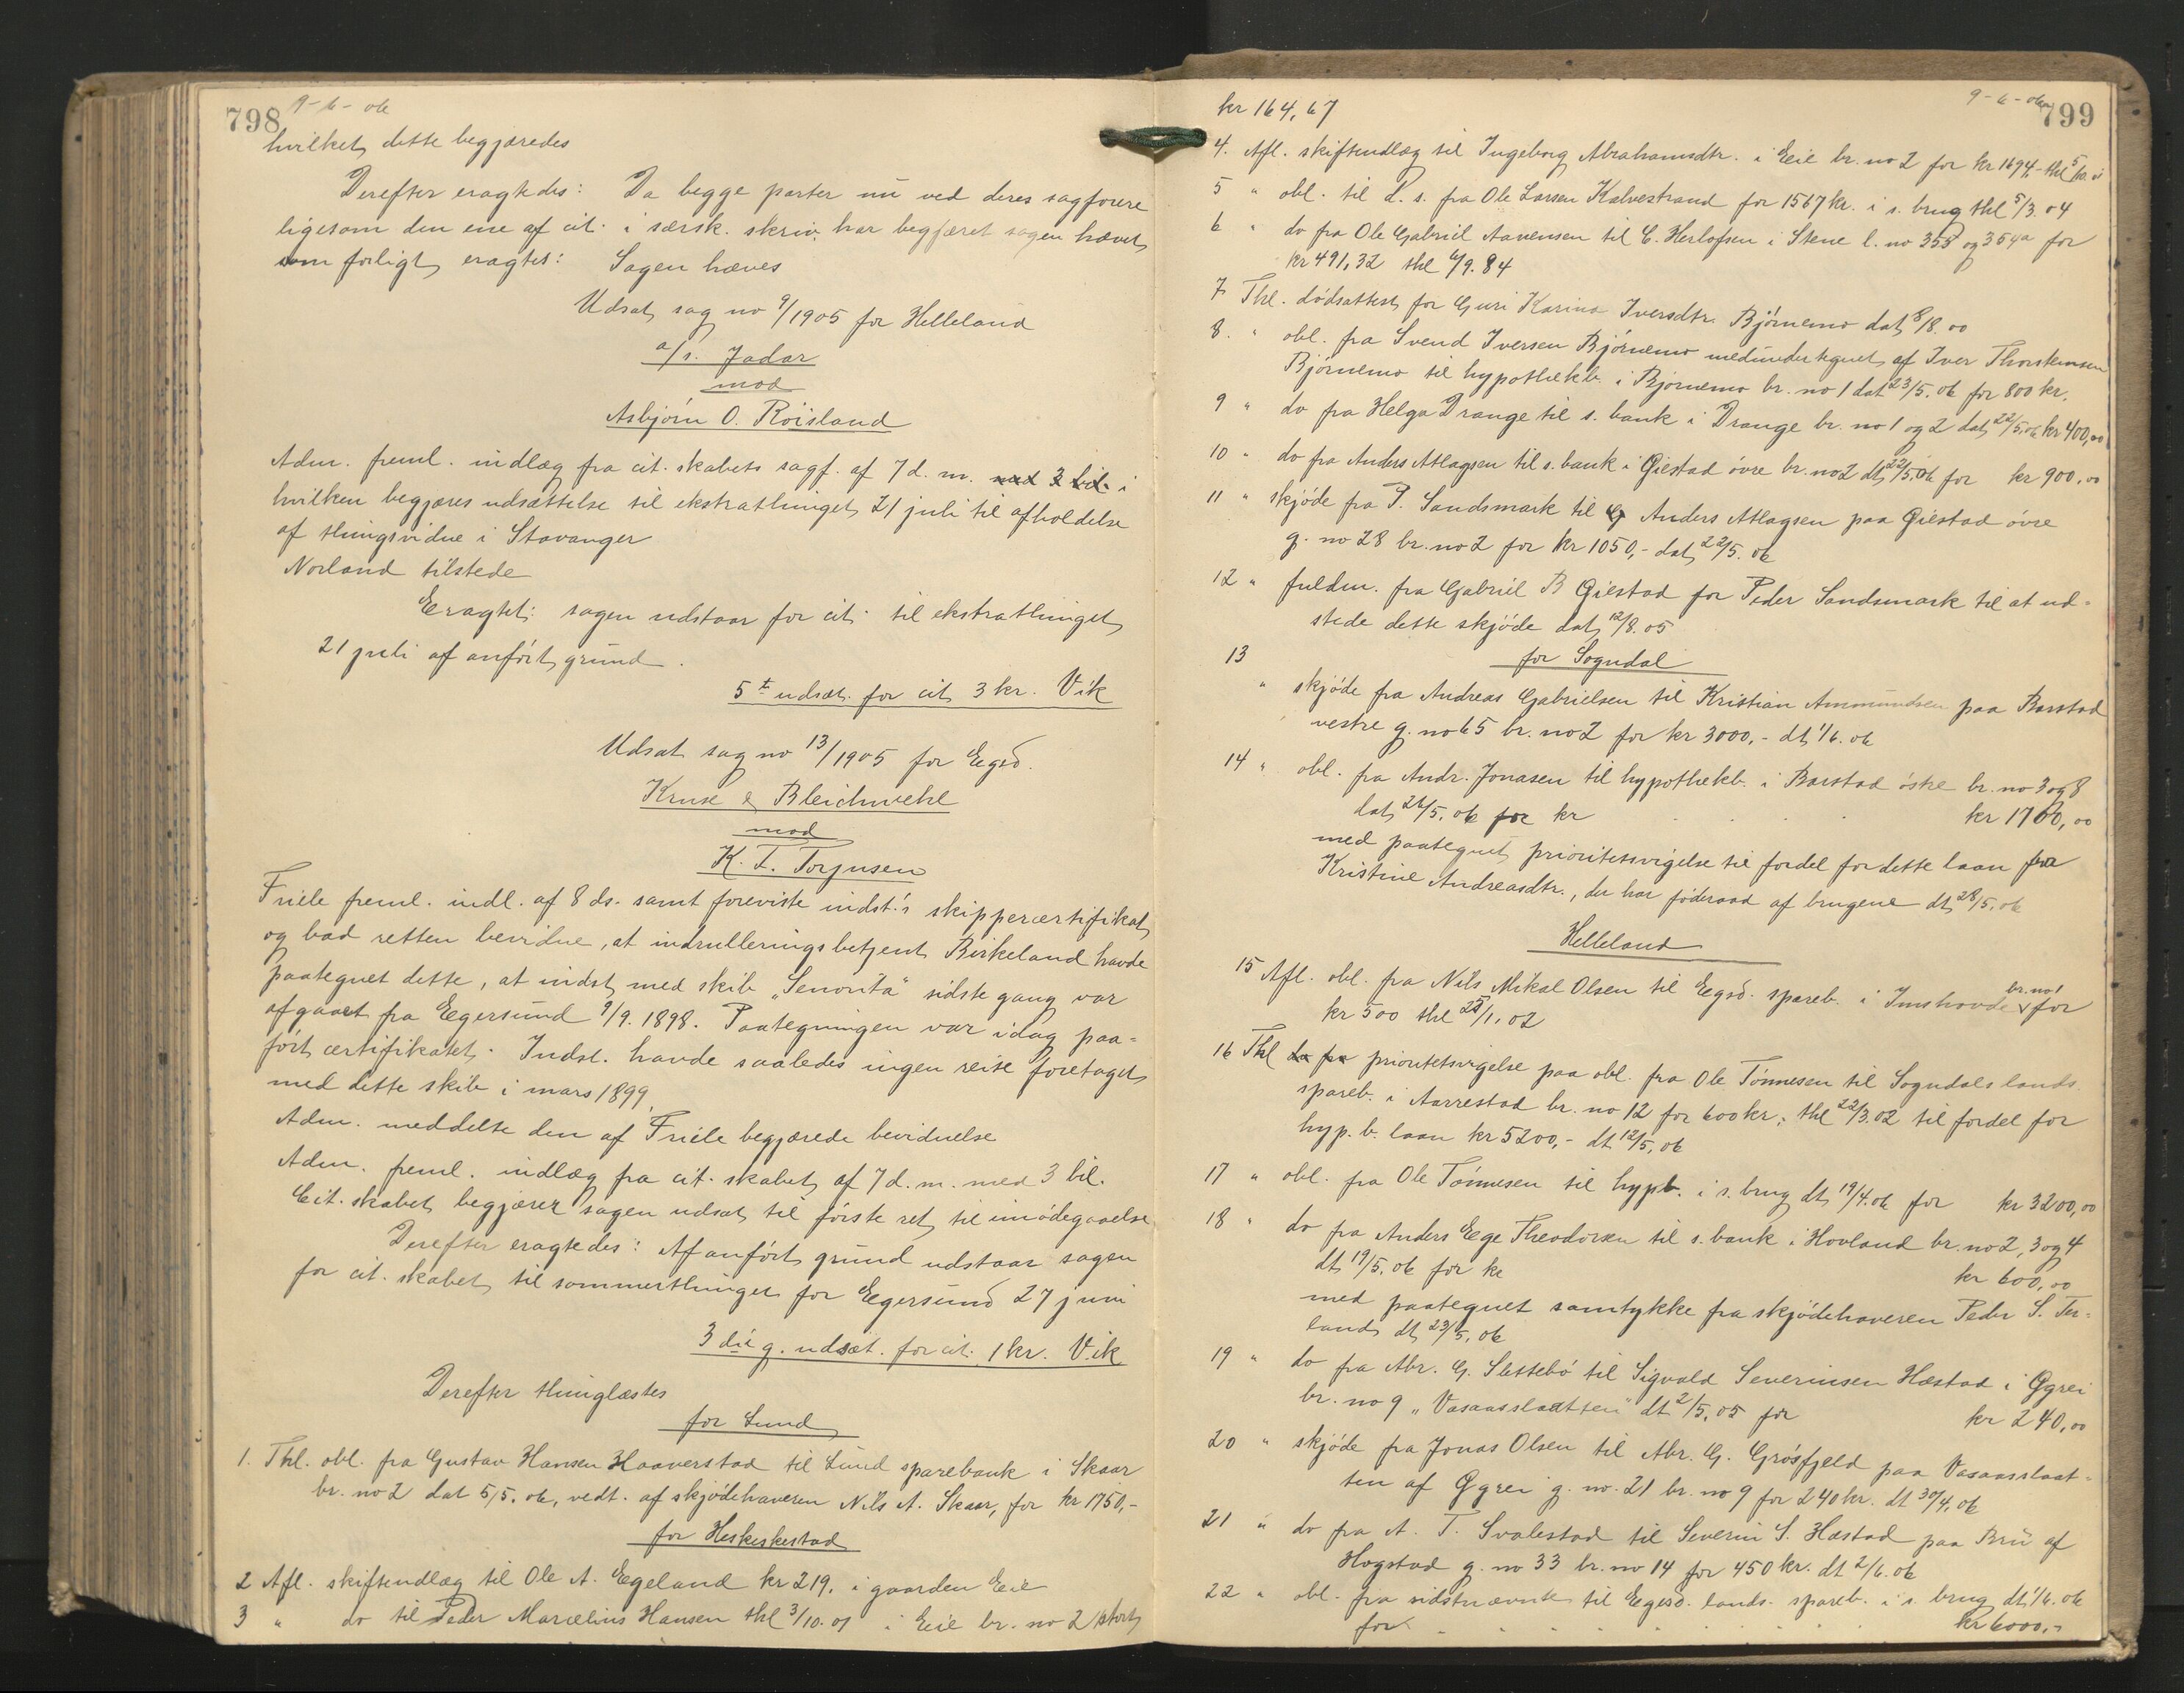 798 9-6-06
hvilket dette begjæredes
Derefter eragtedes: Da begge parter nu ved deres sagførere
ligesom den ene af cit. i særsk. skriv. har begjæret sagen hævet
som forligt, eragtes: Sagen hæves
Udsat sag no 9/1905 for Helleland
a/s. Jadar
mod
Asbjörn O. Röisland
Adm. freml. indlæg fra cit. skabets sagf. af 7 d. m. med 3 bil. i
hvilken begjæres udsættelse til ekstrathinget 21 juli til afholdelse
af thingsvidne i Stavanger
Norland tilstede
Eragtet: sagen udstaar for cit. til ekstrathinget
21 juli af anført grund.
5t udsæt. for cit 3 kr. Vik
Udsat sag no 13/1905 for Egsd.
Kruse & Bleichwehl
mod
K. T. Torjusen
Friele freml. indl. af 8 ds. samt foreviste indst.'s skippercertifikat
og bad retten bevidne, at indrulleringsbetjent Birkeland havde
paategnet dette, at indst. med skib „Senorita" sidste gang var
afgaaet fra Egersund 9/9. 1898. Paategningen var idag paa-
ført certifikatet. Indst. havde saaledes ingen reise foretaget
med dette skib i mars 1899
Adm. meddelte den af Friele begjærede bevidnelse
Adm. freml. indlæg fra cit. skabet af 7 d. m. med 3 bil.
Cit. skabet begjærer sagen udsat til første ret til imødegaaelse
Derefter eragtedes: Af anført grund udstaar sagen
for cit. skabet til sommerthinget for Egersund 27 juni
3 die g. udsæt. for cit. 1 kr. Vik
Derefter thinglæstes
for Lund
1. Thl. obl. fra Gustav Hansen Haaverstad til Lund sparebank i Skaar
br. no 2 dat 5/5. 06, vedt. af skjødehaveren Nils A. Skaar, for kr 1750,-
for Heskeskestad
2 Afl. skifteudlæg til Ole A. Egeland kr 219. i gaarden Eie
3 " do til Peder Marcelius Hansen thl 3/10. 01 i Eie br. no 2 stort
9-6-06 799
kr 164,67
4. Afl. skifteudlæg til Ingeborg Abrahamsdtr. i Eie br. no 2 for kr 1694,- thl
5 " obl. til L. s. fra Ole Larsen Kalvestrand for 1567 kr. i s. brug thl 5/3. 04
6 " do fra Ole Gabriel Aanensen til C. Herlofsen i Stene l. no 353 og 354a for
kr 491,32 thl 6/9. 84
7 Thl. dødsattest for Guri Karina Iversdtr. Björnemo dat 8/8. 00
8. " obl. fra Svend Iversen Björnemo medundertegnet af Iver Thorstensen
Björnemo til hypothekb. i Björnemo br. no 1 dat 23/5. 06 for 800 kr.
9 " do fra Helga Drange til s. bank i Drange br. no 1 og 2 dat 22/5. 06 kr 400,00
10 " do fra Anders Atlagsen til s. bank i Giestad övre br. no 2 dt 22/5. 06 for kr 900.00
11 " skjöde fra P. Sandsmark til Anders Atlagsen paa Giestad övre
g. no 28 br. no 2 for kr 1050,- dat 22/5. 06
12 " fuldm. fra Gabriel B Giestad for Peder Sandsmark til at ud-
stede dette skjöde dat 12/8. 05
for Sogndal
13 " skjöde fra Andreas Gabrielsen til Kristian Ammundsen paa Barstad
vestre g. no 65 br. no 2 for kr 3000,- dt 1/6. 06
14 " obl. fra Andr. Jonasen til hypothekb. i Barstad östre br. no 3 og 8
dat 26/5. 06 for kr . . . kr 1700,00
med paategnet prioritetsvigelse til fordel for dette laan fra
Kristine Andreasdtr., der har föderaad af brugene dt 28/5. 06
Helleland
15 Afl. obl. fra Nils Mikal Olsen til Egsd. spareb. i Imshovde br. no 1 for
kr 500 thl 25/1. 02
16 Thl do fra prioritetsvigelse paa obl. fra Ole Tönnesen til Sogndals lands.
spareb. i Aarrestad br. no 12 for 600 kr. thl 22/3. 02 til fordel for
hyp. b. laan kr 5200,- dt 12/5. 06
17 " obl. fra Ole Tönnesen til hypb. i s. brug dt 19/4. 06 for kr 3200,00
18 " do fra Anders Ege Theodorsen til s. bank i Hovland br. no 2, 3 og 4
dt 19/5. 06 for kr kr 600,00
med paategnet samtykke fra skjödehaveren Peder S. Ter-
land dt 23/5. 06
19 " do fra Abr. G. Slettebö til Sigvald Severinsen Hæstad i Ggrei
br. no 9 „Vasaasslaatten" dt 2/5. 05 for kr 240,00
20 " skjöde fra Jonas Olsen til Abr. G. Grösfjeld paa Vasaasslaat-
ten af Ggrei g. no. 21 br. no 9 for 240 kr. dt 30/4. 06
21 " do fra A. T. Svalestad til Severin S. Hæstad paa Bru af
Hogstad g. no 33 br. no 14 for 450 kr. dt 2/6. 06
22 " obl. fra sidstnævnte til Egersd. lands. spareb. i s. brug dt 1/6. 06
for . . . . . . kr 6000.-